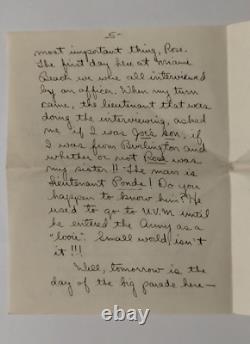 -5-
most important thing, Rose.
The first day here at Miami
Beach we were all interviewed
by an officer. When my turn
came, the lieutenant that was
doing the interviewing, asked
me if I was Joe's son, if
I was from Burlington and
whether or not Rose was
my sister!! The man is
lieutenant Ponds! Do you
happen to know him? He
used to go to U.V.M. until
he entered the Army as a
"looie". Small world isn't
it!!!
Well, tomorrow is the
day of the big parade here—
ebay